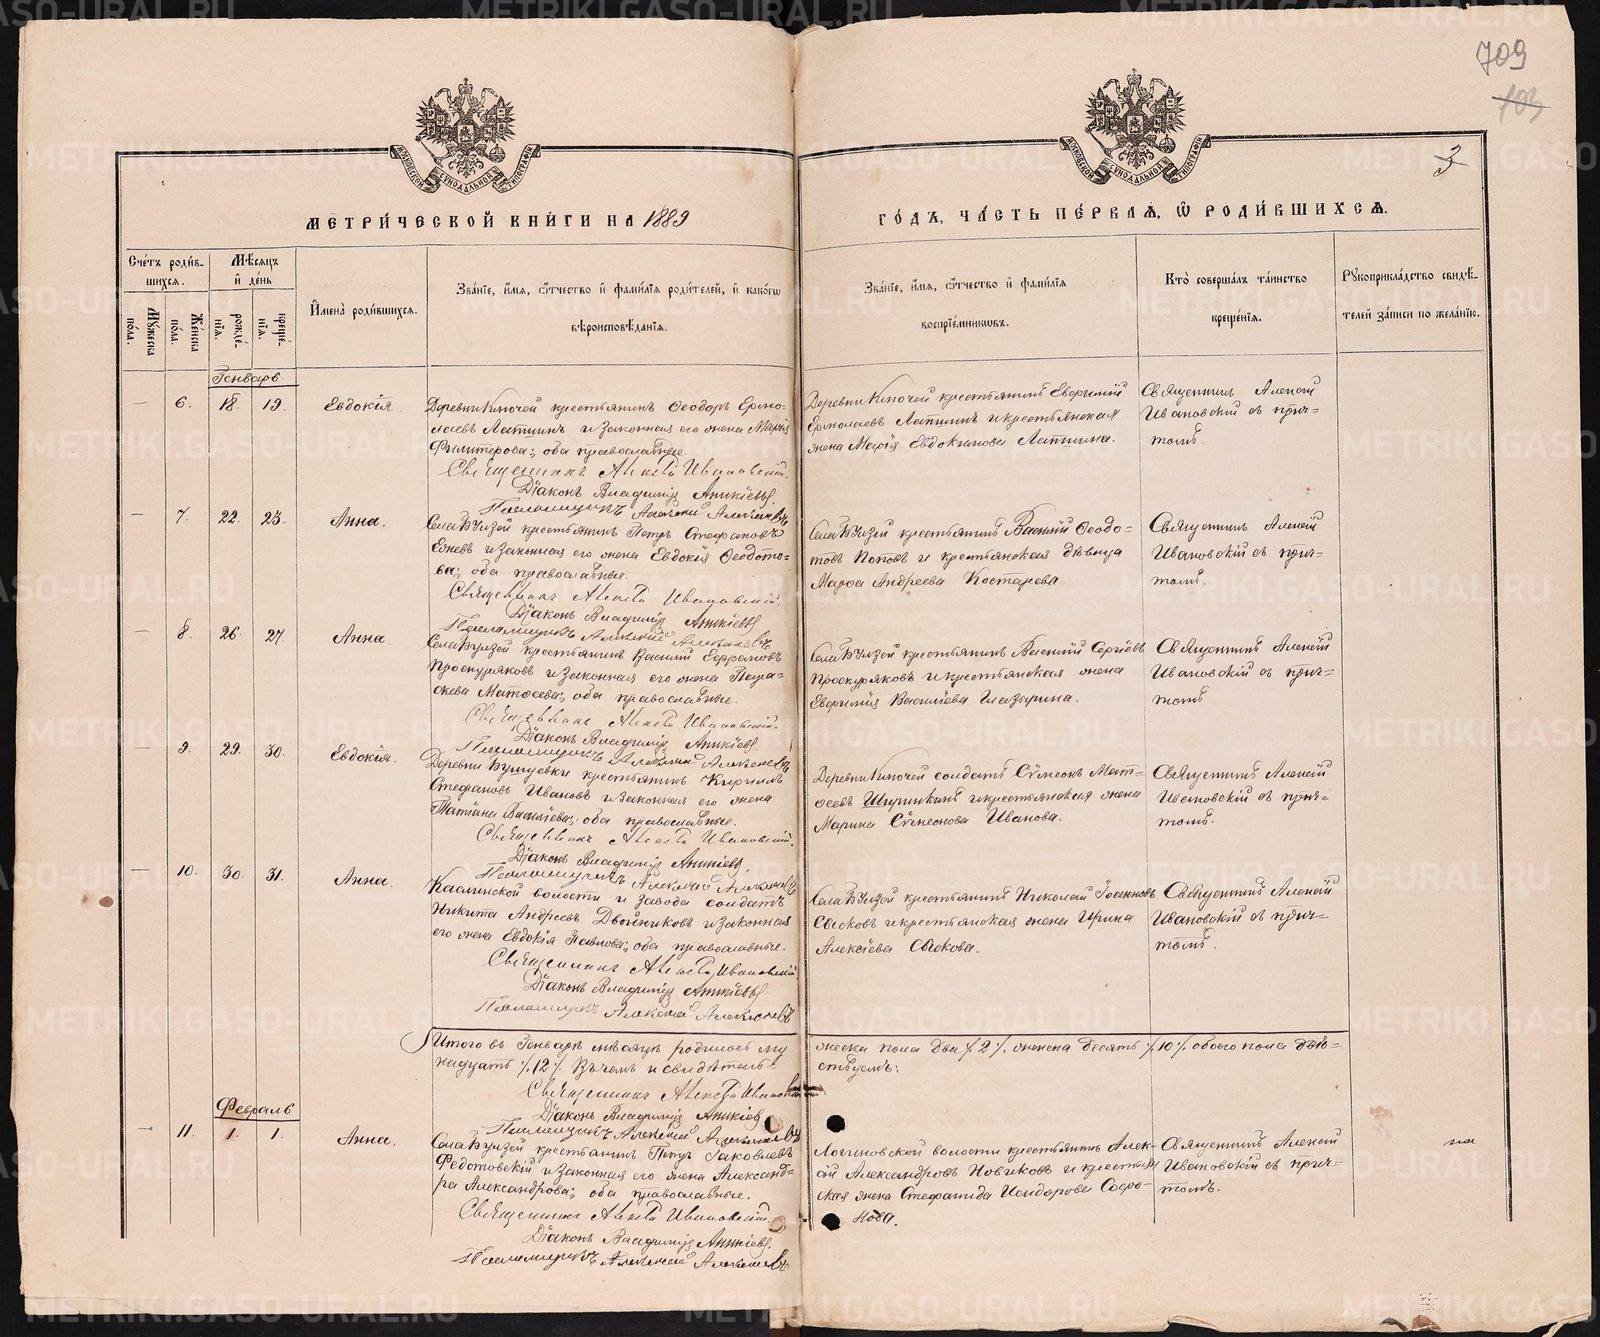 709
103
3
МЕТРИ́ЧЕСКОЙ КНИ́ГИ НА 1889
ГО́ДЪ, ЧА́СТЬ ПЕ́РВАѦ, Ѡ РОДИ́ВШИХСѦ.
Сче́тъ роди́в-
шихся.
Мѣ́сяцъ
и҆ де́нь
Мꙋжеска по́ла.
Же́нска по́ла.
рожде́-
нїя.
креще́-
нїя.
И҆мена̀ роди́вшихся.
Зва́нїе, и҆́мя, ѻ҆́тчество и҆ фами́лїя роди́телей, и҆ како́гѡ
вѣроисповѣ́данїя.
Зва́нїе, и҆́мя, ѻ҆́тчество и҆ фами́лїя
воспрїе́мникѡвъ.
Кто̀ соверша́лъ та́инство
креще́нїя.
Рꙋкоприкла́дство свидѣ́-
телей за́писи по жела́нїю.
Генварь.
— 6. 18. 19. Евдокія
Деревни Ключей крестьянинъ Ѳеодоръ Ермо-
лаевъ Лапшинъ и законная его жена Марія
оба православные
Священникъ Алексѣй Ивановскій.
Діаконъ Владиміръ Аникіевъ.
Псаломщикъ Алексѣй Алексѣевъ
Деревни Ключей крестьянинъ Евгеній
Ермолаевъ Лапшинъ и крестьянская
жена Марія Евдокимова Лапшина.
Священникъ Алексѣй
Ивановскій съ прич-
томъ.
— 7. 22. 23. Анна.
Села Булзей крестьянинъ Петръ Стефановъ
и законная его жена Евдокія Ѳеодото-
ва; оба православные.
Священникъ Алексѣй Ивановскій.
Діаконъ Владиміръ Аникіевъ
Псаломщикъ Алексѣй Алексѣевъ
Села Булзей крестьянинъ Василій Ѳеодо-
товъ Поповъ и крестьянская дѣвица
Марѳа Андреева Костарева.
Священникъ Алексѣй
Ивановскій съ прич-
томъ.
— 8. 26. 27. Анна
Села Булзей крестьянинъ Василій Ефремовъ
Проскуряковъ и законная его жена Пара-
скева Матѳеева; оба православные.
Священникъ Алексѣй Ивановскій.
Діаконъ Владиміръ Аникіевъ
Псаломщикъ Алексѣй Алексѣевъ
Села Булзей крестьянинъ Василій Сергіевъ
Проскуряковъ и крестьянская жена
Евгенія Васильева Глазырина.
Священникъ Алексѣй
Ивановскій съ прич-
томъ
— 9. 29. 30. Евдокія.
Деревни крестьянинъ Кириллъ
Стефановъ Ивановъ и законная его жена
Татіана Васильева; оба православные.
Священникъ Алексѣй Ивановскій.
Діаконъ Владиміръ Аникіевъ
Псаломщикъ Алексѣй Алексѣевъ
Деревни Ключей солдатъ Сѵмеонъ Мат-
ѳеевъ Ширинкинъ и крестьянская жена
Марина Сѵмеонова Иванова.
Священникъ Алексѣй
Ивановскій съ прич-
томъ.
— 10. 30. 31. Анна.
Каслинской волости и завода солдатъ
Никита Андреевъ Двойниковъ и законная
его жена Евдокія Павлова; оба православные.
Священникъ Алексѣй Ивановскій
Діаконъ Владиміръ Аникіевъ
Псаломщикъ Алексѣй Алексѣевъ
Села Булзей крестьянинъ Николай Іоанновъ
Сысковъ и крестьянская жена Ирина
Алексіева Сыскова.
Священникъ Алексѣй
Ивановскій съ прич-
томъ.
Итого въ Генварѣ мѣсяцѣ родилось му
жеска пола два /2/, женска десять /10/, обоего пола двѣ-
надцать /12/. Въ чемъ и свидѣтель-
ствуемъ:
Священникъ Алексѣй Ивановскій
Діаконъ Владиміръ Аникіевъ
Псаломщикъ Алексѣй Алексѣевъ
Февраль
— 11. 1. 1. Анна.
Села Булзей крестьянинъ Петръ Іаковлевъ
Федотовскій и законная его жена Александ-
ра Александрова; оба православные.
Священникъ Алексѣй Ивановскій
Діаконъ Владиміръ Аникіевъ.
Псаломщикъ Алексѣй Алексѣевъ
Логиновской волости крестьянинъ Алек-
сѣй Александровъ Новиковъ и крестьян
ская жена Стефанида Исидорова Соро-
Священникъ Алексѣй
Ивановскій съ прич-
томъ.